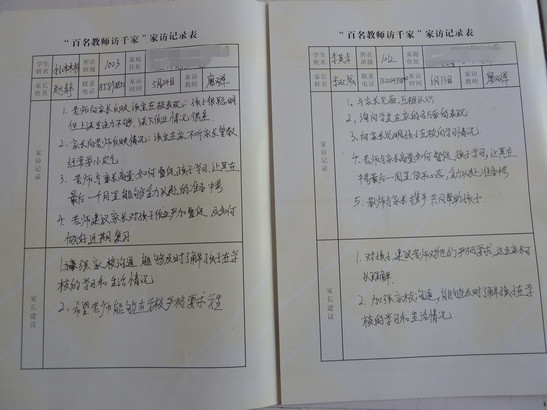 “百名教师访千家”家访记录表
学生姓名
所在班级
1003
家庭住址
家长姓名
联系电话
家访时间
5月29日
家访教师
家访记录
1、老师向家长反映该生在校表现：孩子很聪明
但上课注力不够，课下作业情况很差
2、家长向老师反映情况：该生在家不听家长管教
经常带小脾气
3、老师与家长商量如何督促孩子学习，让其在
最后一月里能够全力以赴的准备中考
4、老师建议家长对孩子作业严加督促，及如何
做好近期复习
家长建议
1、加强家校沟通，能够及时了解孩子在学
校的学习和生活情况
2、希望老师能够在学校严格要求学生
“百名教师访千家”家访记录表
学生姓名
所在班级
家庭住址
家长姓名
联系电话
家访时间
6月13日
家访教师
家访记录
1、与家长见面，互相认识
2、询问学生在家的各方面的表现
3、向家长说明孩子在校的学习情况
4、老师与家长商量如何督促孩子学习，让其在
中考最后一周里，全力以赴准备中考
5、教师与家长携手共同帮助孩子
家长建议
1、对孩子建议老师对他们严格要求，这点家长可
以理解
2、加强家校沟通，能够及时了解孩子在学
校的学习和生活情况